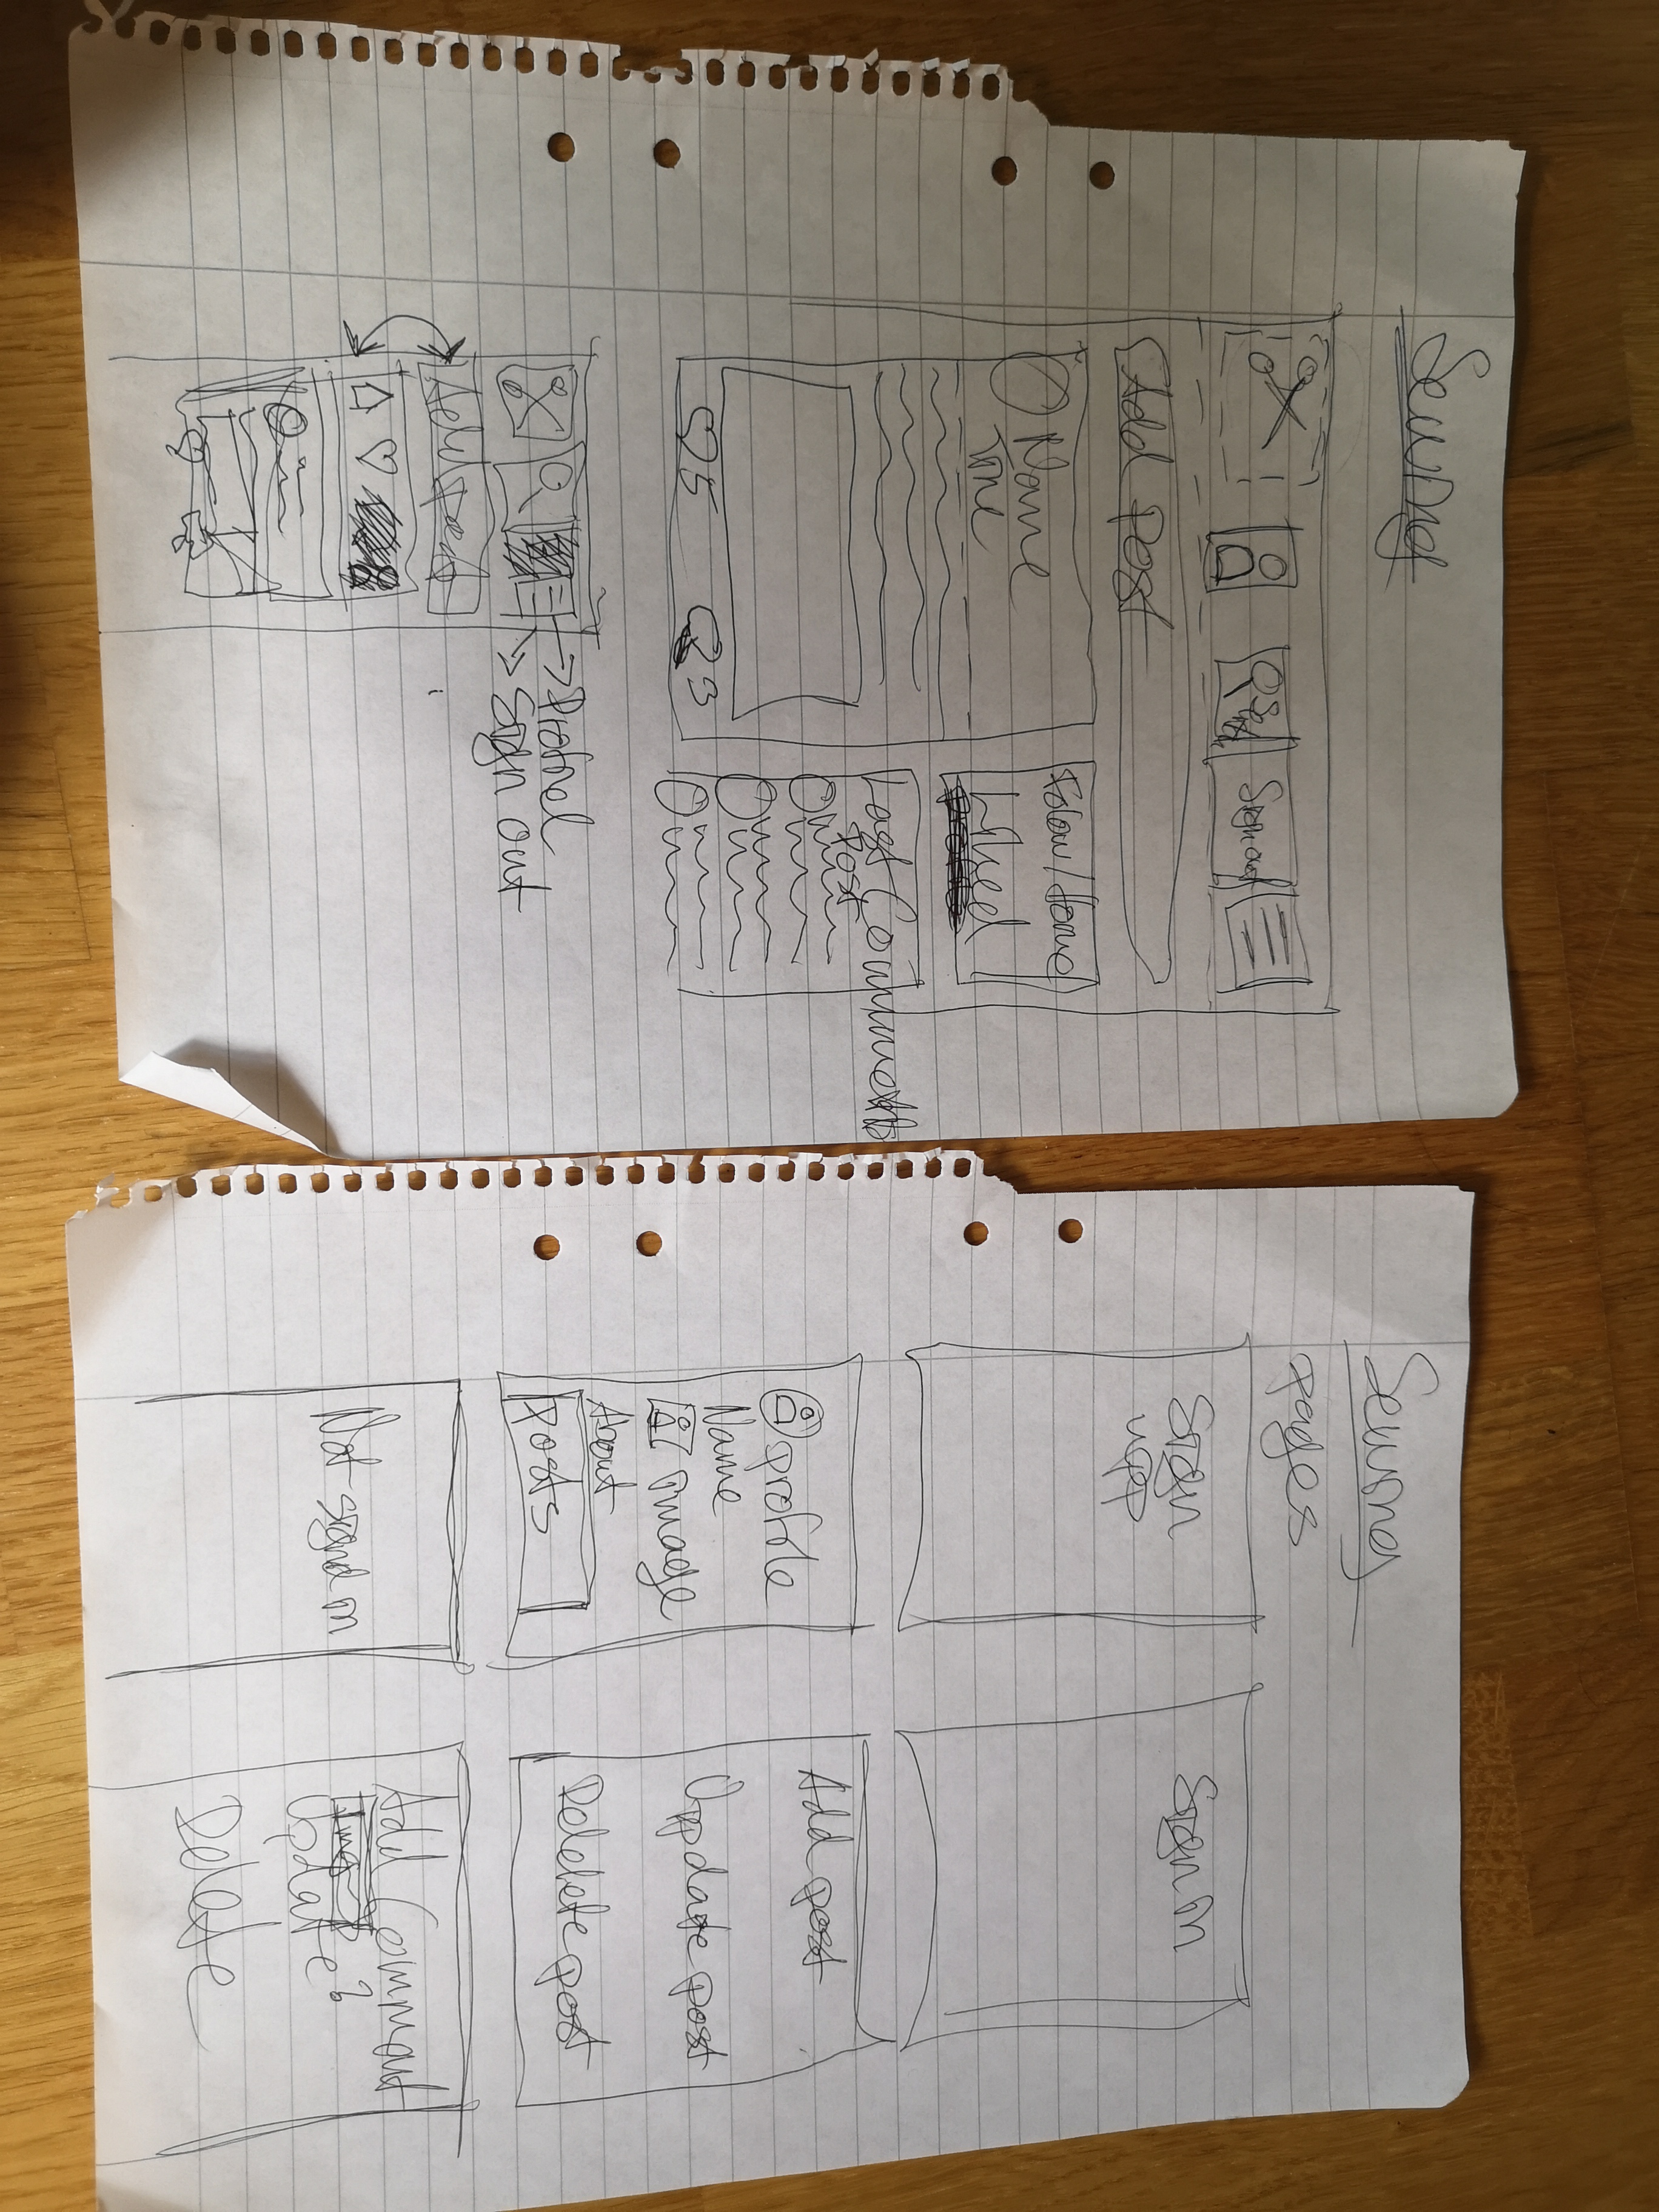 Sewing
Sign out
Add post
Name
Time
Folow/Home
Liked
Last Comments
Post
5
3
Profiel
Sign out
Add post
Sewing
pages
Sign
upp
Sign in
profile
Name
image
About
posts
Add post
Uppdate post
Delelete post
Not signd in
Add Comment
Update?
Delete